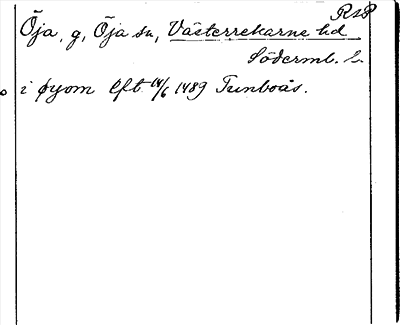 RAP
Öja, g, Öja sn, Västerrekarne hd
Söderml. L.
i øyom Eft 14/6 1489 Tunboås.